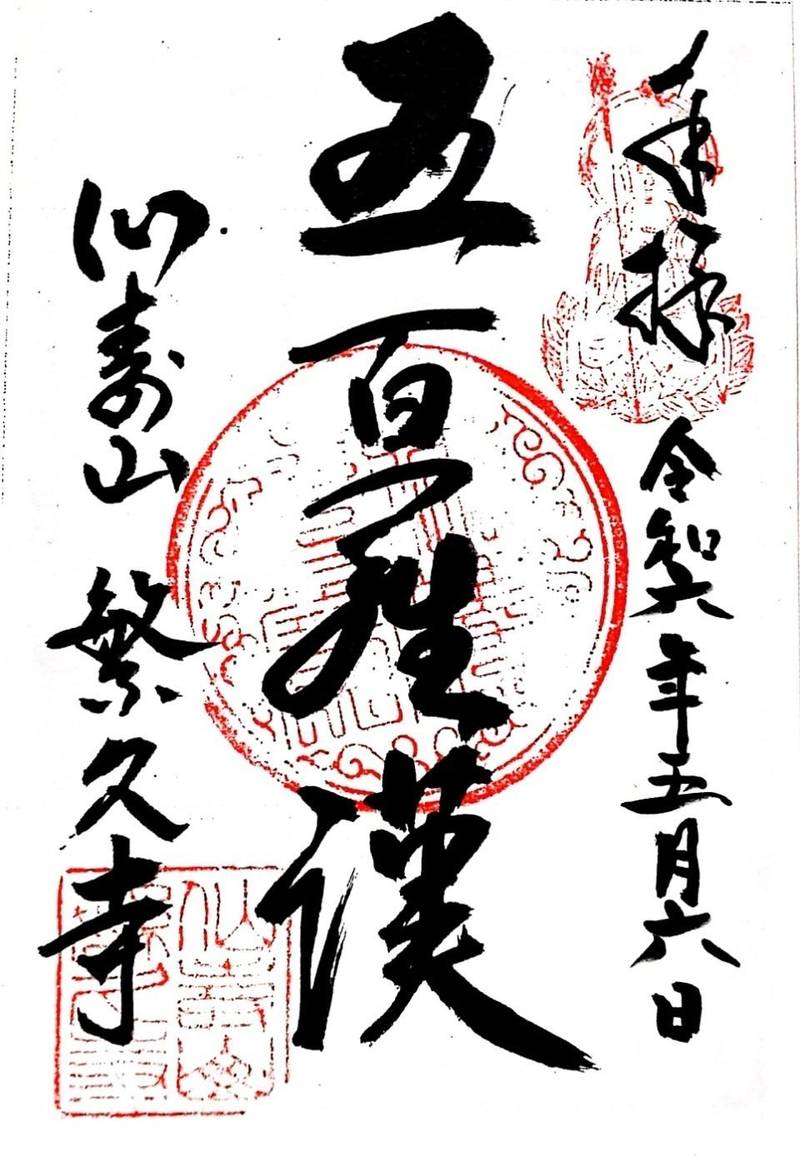 奉拝 令和六年五月六日
五百羅漢
仙寿山 繁久寺